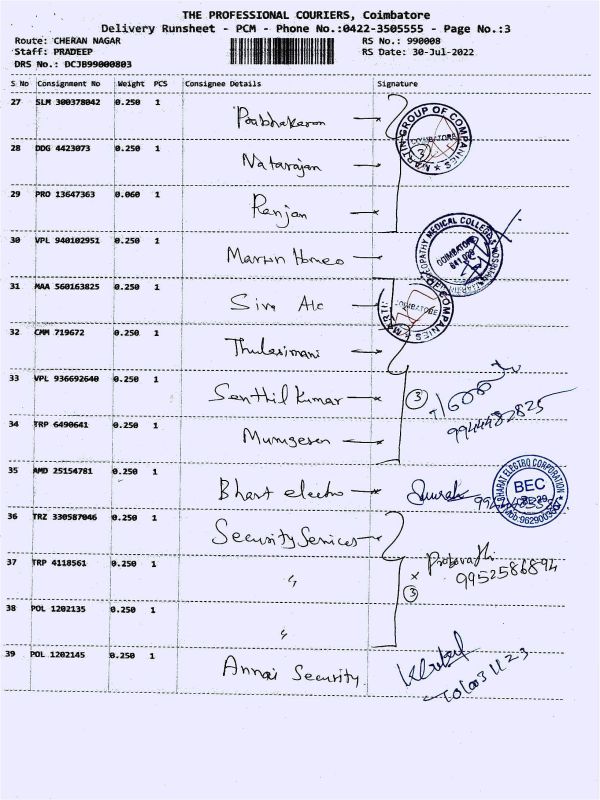 THE PROFESSIONAL COURIERS, Coimbatore
Delivery Runsheet - PCM - Phone No.:0422-3505555 - Page No.:3
Route: CHERAN NAGAR RS No.: 990008
Staff: PRADEEP RS Date: 30-Jul-2022
DRS No.: DCJB99000803
S No Consignment No Weight PCS Consignee Details Signature
27 SLM 300378042 0.250 1 Prabhakaran
MARTIN GROUP OF COMPANIES
COIMBATORE
28 DDG 4423073 0.250 1 Natarajan
3
29 PRO 13647363 0.060 1 Ranjan
30 VPL 940102951 0.250 1 Martin Homeo
COIMBATORE
31 MAA 560163825 0.250 1 Siva Alc
COIMBATORE
32 CMM 719672 0.250 1 Thulasimani
33 VPL 936692640 0.250 1 Senthil Kumar 3
9944482825
34 TRP 6490641 0.250 1 Murugesan
35 AMD 25154781 0.250 1 Bharat electro
BHARAT ELECTRO CORPORATION
BEC
36 TRZ 330587046 0.250 1 Security Services
37 TRP 4118561 0.250 1 "
9952586894
3
38 POL 1202135 0.250 1 "
39 POL 1202145 0.250 1 Annai Security